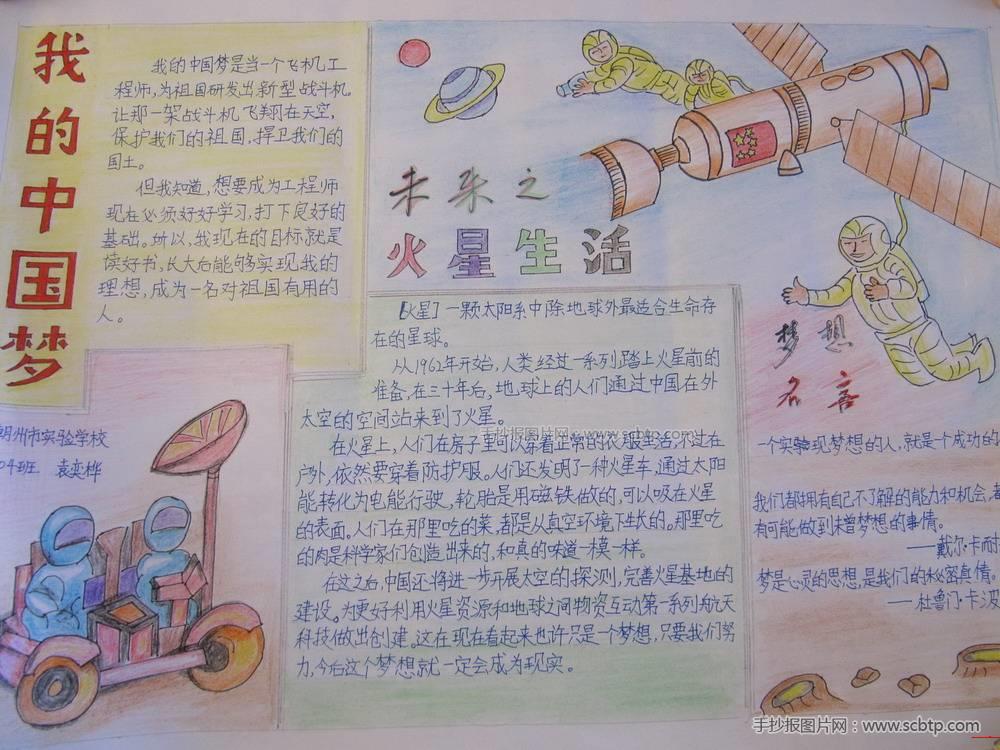 我的中国梦
我的中国梦是当一个飞机工
程师,为祖国研发出新型战斗机
让那一架战斗机飞翔在天空,
保护我们的祖国,捍卫我们的
国土。
但我知道,想要成为工程师
现在必须好好学习,打下良好的
基础。所以,我现在的目标就是
读好书,长大后能够实现我的
理想,成为一名对祖国有用的
人。
州市实验学校
04班 袁奕桦
未来之
火星生活
[火星]一颗太阳系中除地球外最适合生命存
在的星球。
从1962年开始,人类经过一系列踏上火星前的
准备,在三十年后,地球上的人们通过中国在外
太空的空间站来到了火星。
在火星上,人们在房子里可以穿着正常的衣服生活,不过在
户外,依然要穿着防护服。人们还发明了一种火星车,通过太阳
能转化为电能行驶,轮胎是用磁铁做的,可以吸在火星
的表面。人们在那里吃的菜,都是从真空环境下生长的。那里吃
的肉是科学家们创造出来的,和真的味道一模一样。
在这之后,中国还将进一步开展太空的探测,完善火星基地的
建设。为更好利用火星资源和地球之间物资互动第一系列航天
科技做出创建。这在现在看起来也许只是一个梦想,只要我们努
力,今后这个梦想就一定会成为现实。
梦想
名言
一个实验现梦想的人,就是个成功的
我们都拥有自己不了解的能力和机会,著
有可能做到未曾梦想的事情。
——戴尔·卡耐
梦是心灵的思想,是我们的秘密真情。
——杜鲁门·卡波
手抄报图片网-www.scbtp.com
手抄报图片网:www.scbtp.com